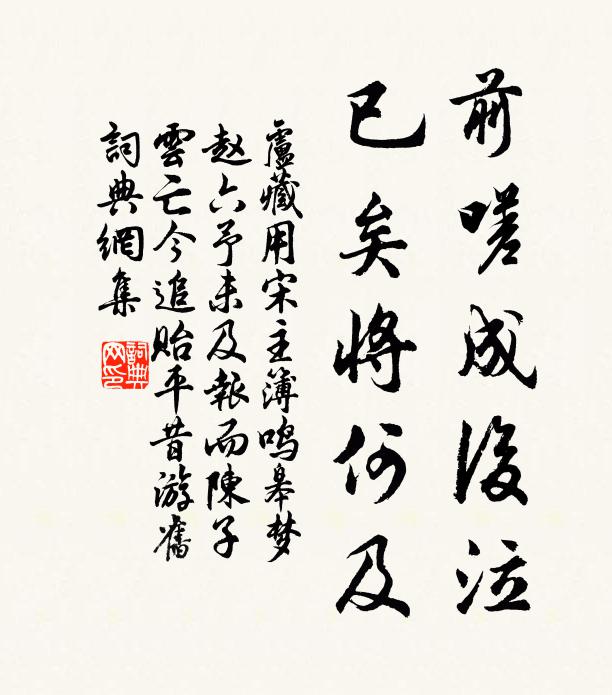 前嗟成後泣
已矣將何及
盧藏用宋主簿鸣皋梦
赵六予未及報而陳子
雲亡今追贻平昔游舊
詞典網集
詞典網印